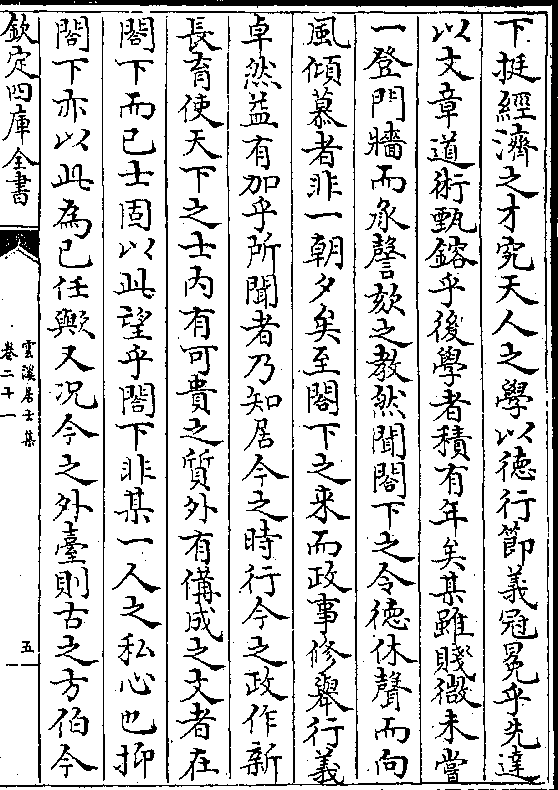 下挺經濟之才究天人之學以徳行節義冠冕乎先達
以文章道術甄鎔乎後學者積有年矣某雖賤微未嘗
一登門牆而承謦欬之教然聞閣下之令徳休聲而向
風傾慕者非一朝夕矣至閣下之来而政事修舉行義
卓然益有加乎所聞者乃知居今之時行今之政作新
長育使天下之士内有可貴之質外有備成之文者在
閣下而已士固以此望乎閣下非某一人之私心也抑
閣下亦以此為已任歟又况今之外臺則古之方伯今
欽定四庫全書
雲溪居士集
卷二十一
五